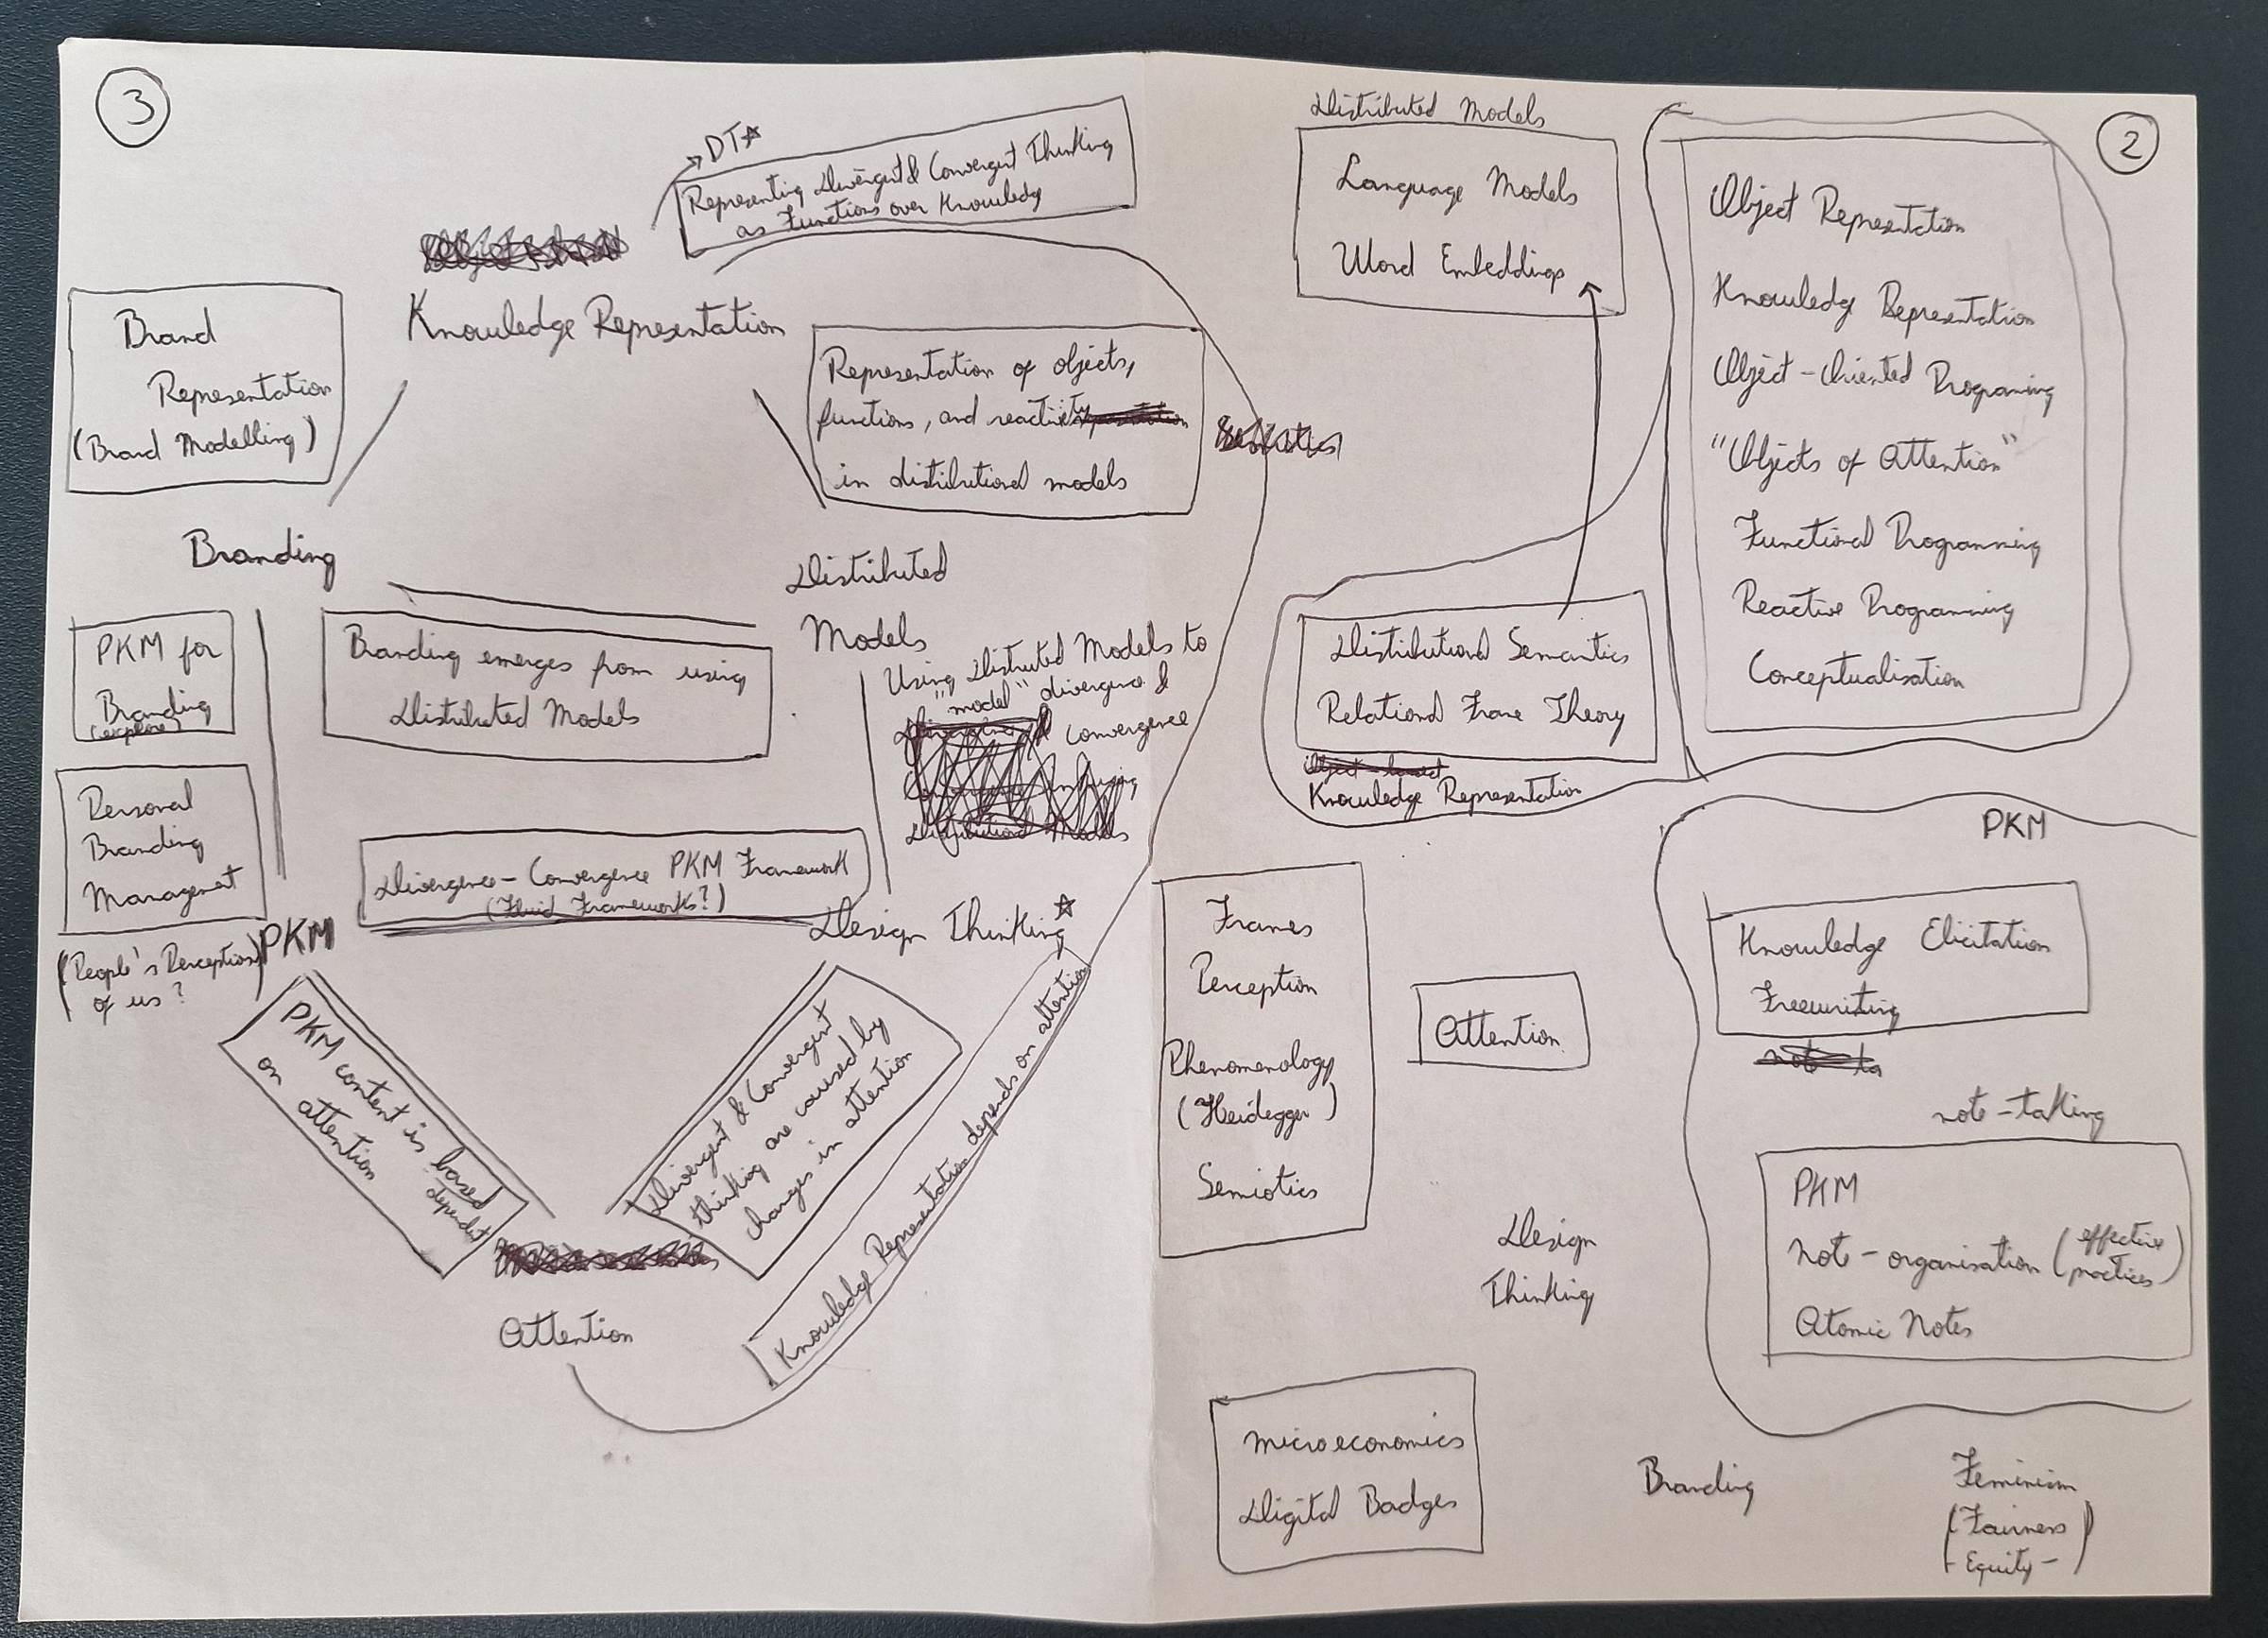 3
→DT☆
Representing Divergent & Convergent Thinking
as Functions over Knowledge
Knowledge Representation
Brand
Representation
(Brand Modelling)
Representation of objects,
functions, and reactivity
in distributional models
Branding
Distributed
Models
PKM for
Branding
(explore)
Branding emerges from using
Distributed Models
Using Distributed Models to
"model" divergence &
convergence
Personal
Branding
Management
(People's Perception)
of us?
PKM
Divergence-Convergence PKM Framework
(Fluid Frameworks?)
Design Thinking☆
PKM content is based
dependent
on attention
Divergent & Convergent
thinking are caused by
changes in attention
Knowledge Representation depends on attention
Attention
2
Distributed Models
Language Models
Word Embeddings
Object Representation
Knowledge Representation
Object-Oriented Programing
"Objects of Attention"
Functional Programming
Reactive Programming
Conceptualisation
Distributional Semantics
Relational Frame Theory
Object-based
Knowledge Representation
PKM
Frames
Perception
Phenomenology
(Heidegger)
Semiotics
Attention
Knowledge Elicitation
Freewriting
note-taking
PKM
Note-organisation (effective
practices)
Atomic Notes
Design
Thinking
Microeconomics
Digital Badges
Branding
Feminism
(Fairness)
- Equity -